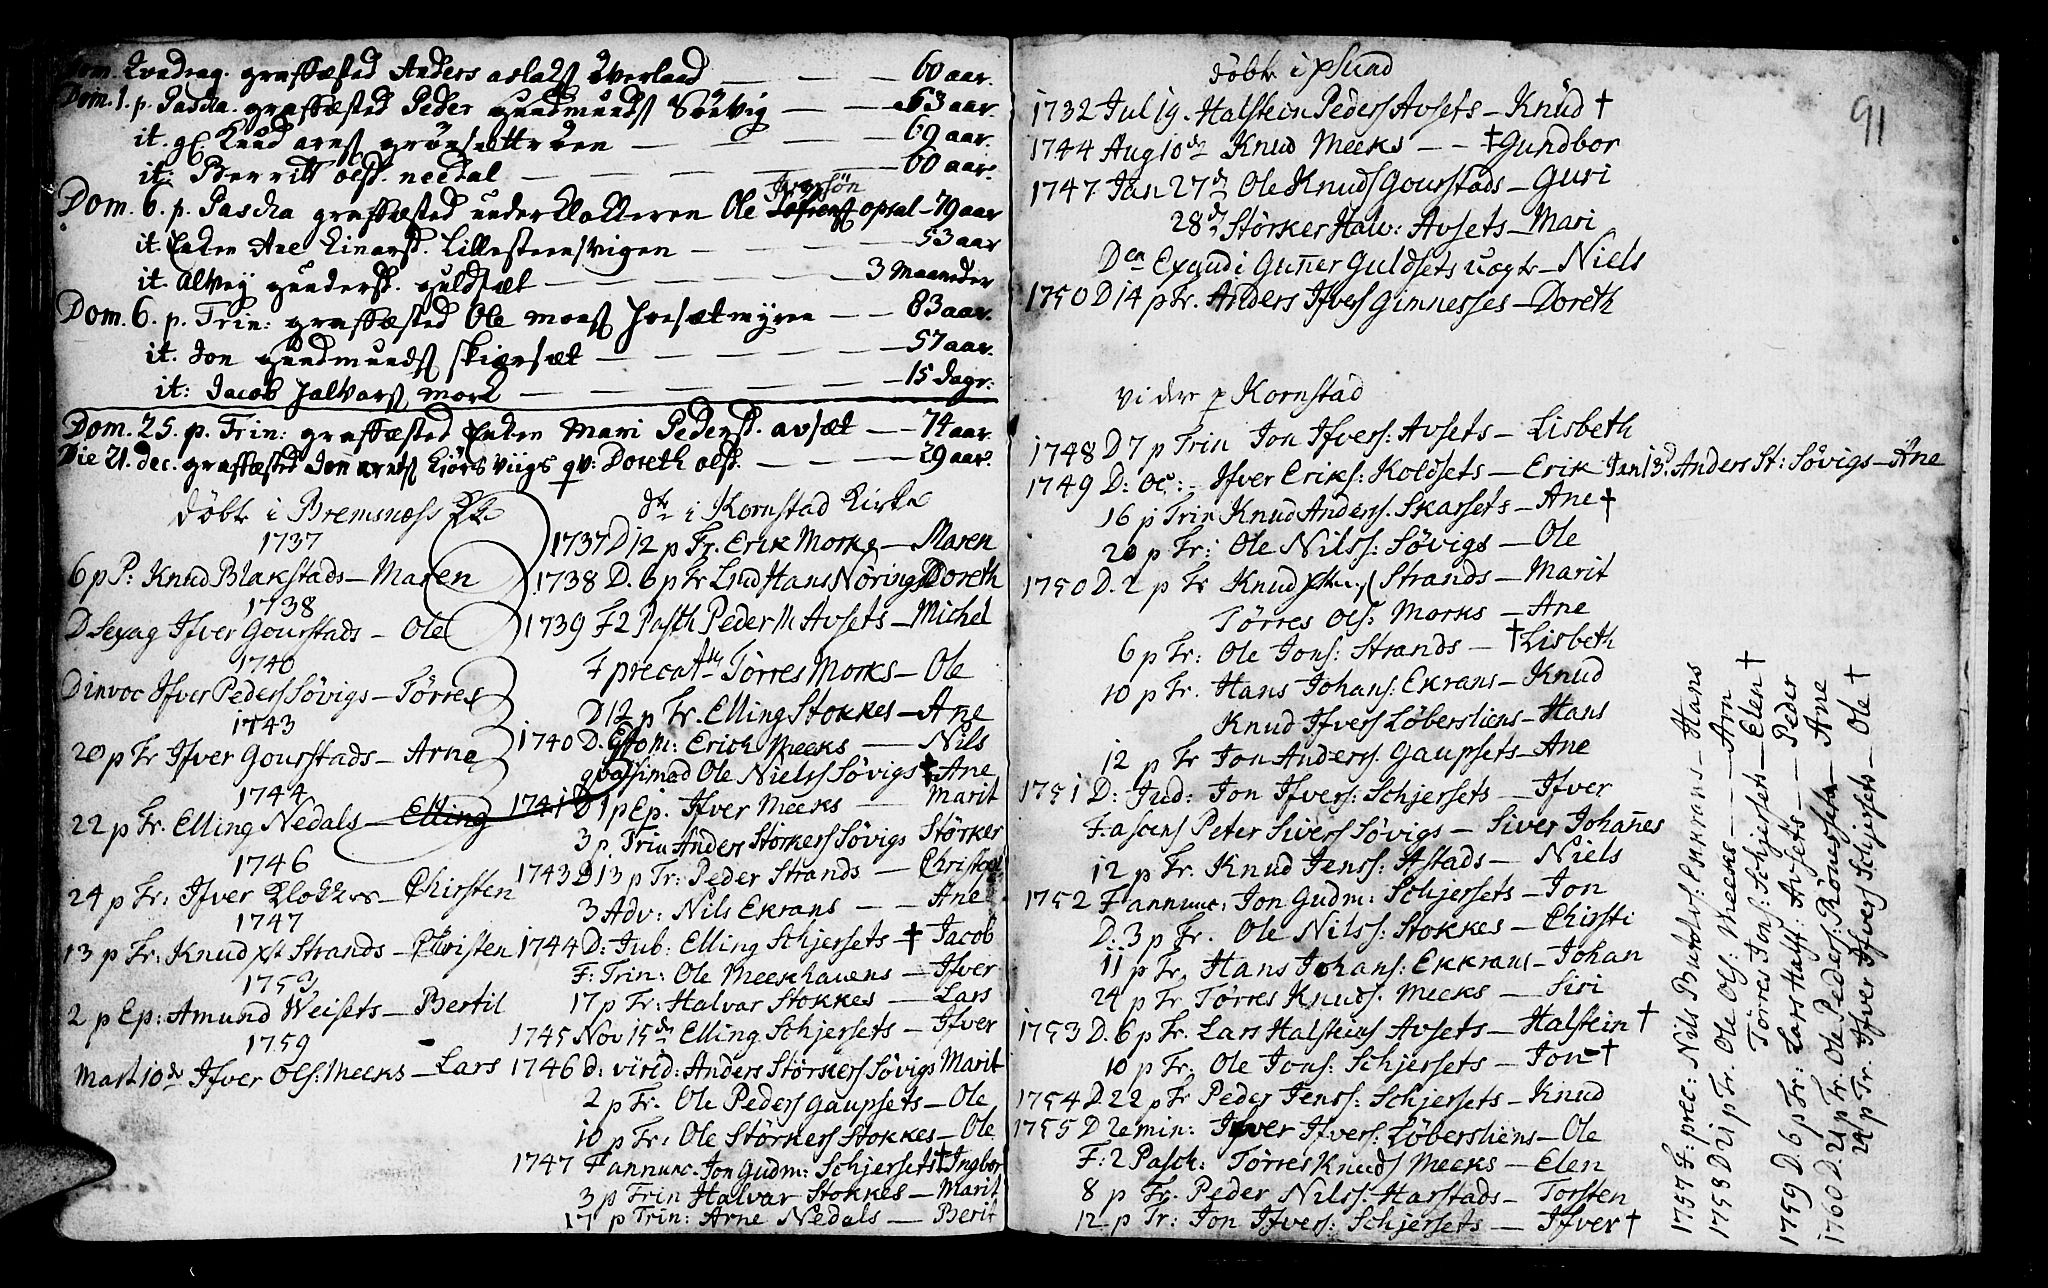 Dom. Quadrag. graffæsted Anders aslaks överland — — — 60 aar.
Dom. 1. p. Pascha. graffæsted Peder gundmunds Sövig — — — 63 aar.
it. Knud arns grönsettröen — — — 69 aar.
it: Berritt olsd. needal — — — 60 aar.
Dom. 6. p. Pascha graffæsted underklokkeren Ole Iversön opsal — 79 aar
it. Enken Ane Einarsd. Lillesteensvigen — — — 53 aar
it. alvey gundersd. guldsæt — — — 3 Maaneder
Dom. 6. p. Trin: graffæsted Ole mons Jonsætmyren — — 83 aar.
it. Jon gundmunds skiærsæt — — — 57 aar.
it: Jacob Halvars mork — — — 15 dage:
Dom. 25. p. Trin: graffæsted Enken Mari Pedersd. avsæt — — 74 aar.
Die 21. dec. graffæsted Jon arnts Kiörsviigs qv: Doreth olsd. — — — 29 aar.
döbte i Bremsness
1737
6 p P: Knud Blakstads — Maren
1738
D Sexag Ifver Gourstads — Ole
1740
D invoc Ifver Peders Sövigs — Törres
1743
20 p Tr Ifver Gourstads — Arne
1744
22 p Tr. Elling Nedals — Elling
1746
24 p Tr: Ifver Klokkers — Chirsten
1747
13 p Tr: Knud xst Strands — Christen
1753
2 p Ep: Amund Weisets — Bertil
1759
Mart 10de Ifver Ols: Meeks — Lars
dte i Kornstad Kirke
1737 D 12 p Tr. Erik Morks — Maren
1738 D. 6 p Tr Lud Hans Nörings Doreth
1739 F 2 Pasch Peder M Avsets — Michel
F precat Törres Morks — Ole
D 12 p Tr. Elling Stokkes — Ane
1740 D. Esto m: Erich Meeks — Nils
qvasimod Ole Nielss Sövigs † Ane
1741 D 1 p Ep. Ifver Meeks — Marit
3 p Trin Anders Störkers Sövigs Störker
1743 D 13 p Tr: Peder Strands —
3 Adv: Nils Ekrans — — Ane
1744 D: Jub: Elling Schjersets — † Jacob
F: Trin: Ole Meekhauens — Ifver
17 p Tr: Halvar Stokkes — Lars
1745 Nov 15de Elling Schjersets — Ifver
1746 D: virid: Anders Störkers Sövigs Marit
2 p Tr. Ole Peders Gaupsets — Ole
10 p Tr: Ole Störkers Stokkes — Ole
1747 F annunc. Jon Gudm: Schjersets † Ingbor
3 p Trin Halvar Stokkes — Marit
17 p Trin: Arne Nedals — Berit
91
döbte i
1732 Jul 19. Halstein Peders Avsets — Knud †
1744 Aug 10de Knud Meeks — — † Gundbor
1747 Jan 27de Ole Knuds Gourstads — Guri
28de Störker Halv: Avsets — Mari
Den Exaudi Guñer Guldsets — Niels
1750 D 14 p Tr. Anders Ifvers Gimnesses — Doreth
videre p Kornstad
1748 D 7 p Trin Jon Ifvers: Avsets — Lisbeth
1749 D: Oc: Ifver Eriks: Koldsets — Erik Jan 13d. Anders St: Sövigs — Ane
16 p Trin Knud Anders. Skarsets — Ane †
20 p Tr: Ole Nilss: Sövigs — Ole
1750 D. 2 p Tr Knud Strands — Marit
Törres Ols: Morks — Ane
6 p Tr: Ole Jons: Strands — † Lisbeth
10 p Tr. Hans Johans: Ekrans — Knud
Knud Ifvers Löbersliens — Hans
12 p Tr Jon Anders. Gaupsets — Ane
1751 D: Jud: Jon Ifvers: Schjersets — Ifver
F: ascens Peter Sivers Sövigs — Siver Johañes
12 p Tr. Knud Jenss: Astads — Niels
1752 F annunc: Jon Gudm: Schjersets — Jon
D: 3 p Tr. Ole Nilss: Stokkes — Chirsti
11 p Tr. Hans Johans: Ekkrans — Johan
24 p Tr Törres Knuds. Meeks — Siri
1753 D. 6 p Tr. Lars Halsteins Avsets — Halstein †
10 p Tr: Ole Jons: Schjersets — Jon †
1754 D 22 p Tr Peder Jenss: Schjersets — Knud
1755 D Remin: Ifver Ifvers: Löbersliens — Ole
F: 2 Pasch: Törres Knuds Meeks — Elen
8 p Tr. Peder Nilss: Harstads — Torsten
12 p Tr: Jon Ifvers: Schjersets — Ifver †
1757 F: prec: Nils Botolvs: Ekkrans — Hans
1758 D 21 p Tr. Ole Ols: Meeks — — Arn
Törres Jons: Schjersets — Elen †
1759 D. 6 p Tr: Lars Halst: Avsets — — Peder
1760 D. 21 p Tr. Ole Peders: Rönesets — Ane
24 p Tr. Ifver Ifvers Schjersets — Ole †